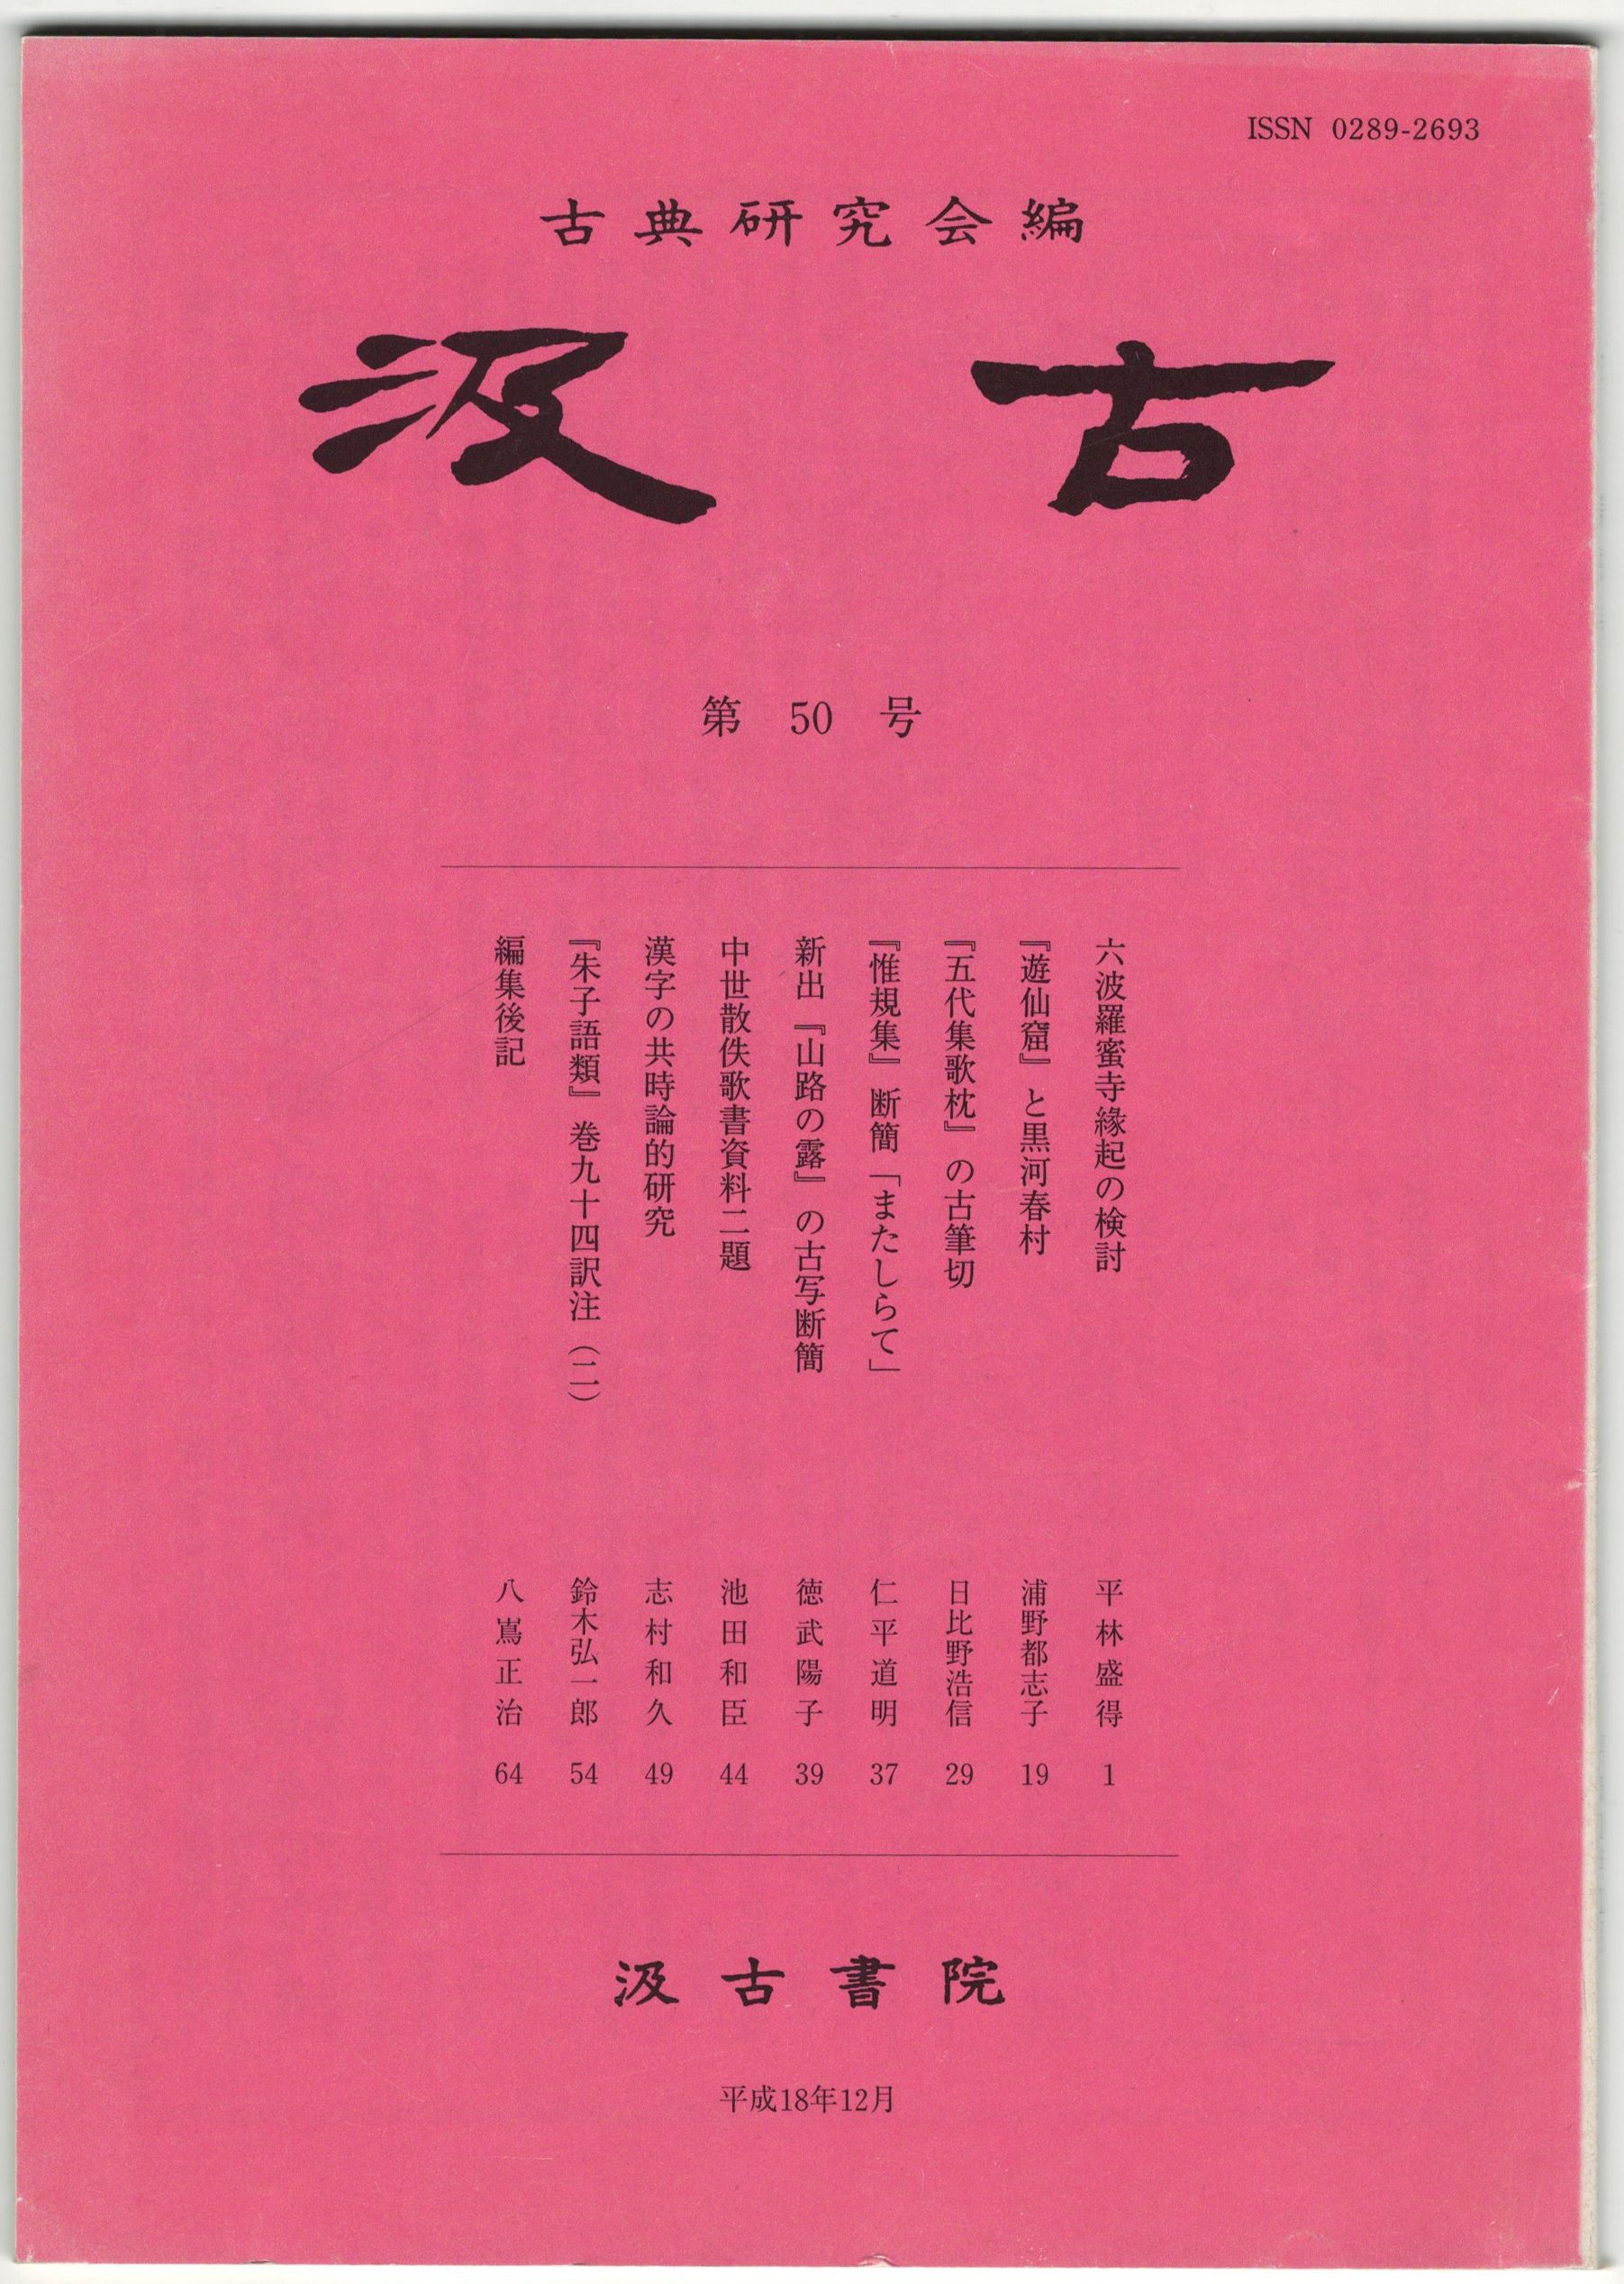 ISSN 0289-2693
古典研究会編
汲古
第 50 号
六波羅蜜寺縁起の検討 平林盛得 1
『遊仙窟』と黒河春村 浦野都志子 19
『五代集歌枕』の古筆切 日比野浩信 29
『惟規集』断簡「またしらて」 仁平道明 37
新出『山路の露』の古写断簡 徳武陽子 39
中世散佚歌書資料二題 池田和臣 44
漢字の共時論的研究 志村和久 49
『朱子語類』巻九十四訳注（二） 鈴木弘一郎 54
編集後記 八嶌正治 64
汲古書院
平成18年12月